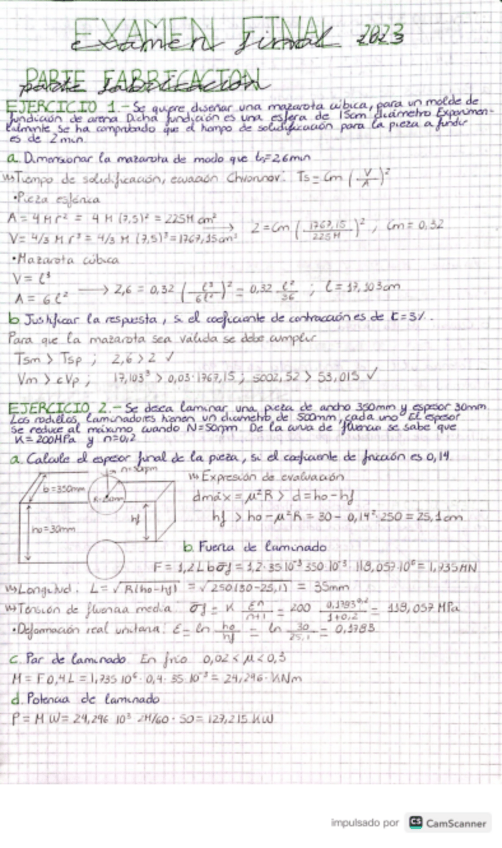 EXAMEN FINAL 2023
examen final
PARTE FABRICACION
parte fabricacion
EJERCICIO 1.- Se quiere diseñar una mazarota cúbica, para un molde de
fundición de arena. Dicha fundición es una esfera de 15cm diámetro. Experimen-
talmente se ha comprobado que el tiempo de solidificación para la pieza a fundir
es de 2 min.
a. Dimensionar la mazarota de modo que ts=2,6min
Tiempo de solidificación, ecuación Chvorinov: Ts = Cm (V/A)²
• Pieza esférica
A = 4πr² = 4π(7,5)² = 225π cm²
V = 4/3πr³ = 4/3π(7,5)³ = 1767,15cm³ → 2 = Cm (1767,15/225π)², Cm = 0,32
• Mazarota cúbica
V = l³
A = 6l² → 2,6 = 0,32 (l³/6l²)² = 0,32 l²/36 ; l = 17,103cm
b. Justificar la respuesta, si el coeficiente de contracción es de C = 3%.
Para que la mazarota sea valida se debe cumplir
Tsm > Tsp ; 2,6 > 2 ✓
Vm > cVp ; 17,103³ > 0,03·1767,15 ; 5002,52 > 53,015 ✓
EJERCICIO 2.- Se desea laminar una pieza de ancho 350mm y espesor 30mm.
Los rodillos laminadores tienen un diámetro de 500mm, cada uno. El espesor
se reduce al máximo cuando N=50rpm. De la curva de fluencia se sabe que
K = 200MPa y n=0,2
a. Calcule el espesor final de la pieza, si el coeficiente de fricción es 0,14.
n=50rpm
b=350mm
ho=30mm
hf
Expresión de evaluación
dmáx = μ²R > d = ho-hf
hf > ho-μ²R = 30 - 0,14²·250 = 25,1cm
b. Fuerza de laminado
F = 1,2 L b σf = 1,2·35·10⁻³·350·10⁻³·118,057·10⁶ = 1,735MN
Longitud. L = √R(ho-hf) = √250(30-25,1) = 35mm
Tensión de fluencia media σf = K εⁿ/n+1 = 200 0,1783^0,2/1+0,2 = 118,057 MPa
• Deformación real unitaria: ε = ln ho/hf = ln 30/25,1 = 0,1783
c. Par de laminado. En frio 0,02 < μ < 0,3
M = F 0,4 L = 1,735·10⁶·0,4·35·10⁻³ = 24,296·kNm
d. Potencia de laminado
P = M W = 24,296·10³·2π/60·50 = 127,215 kW
impulsado por CS CamScanner